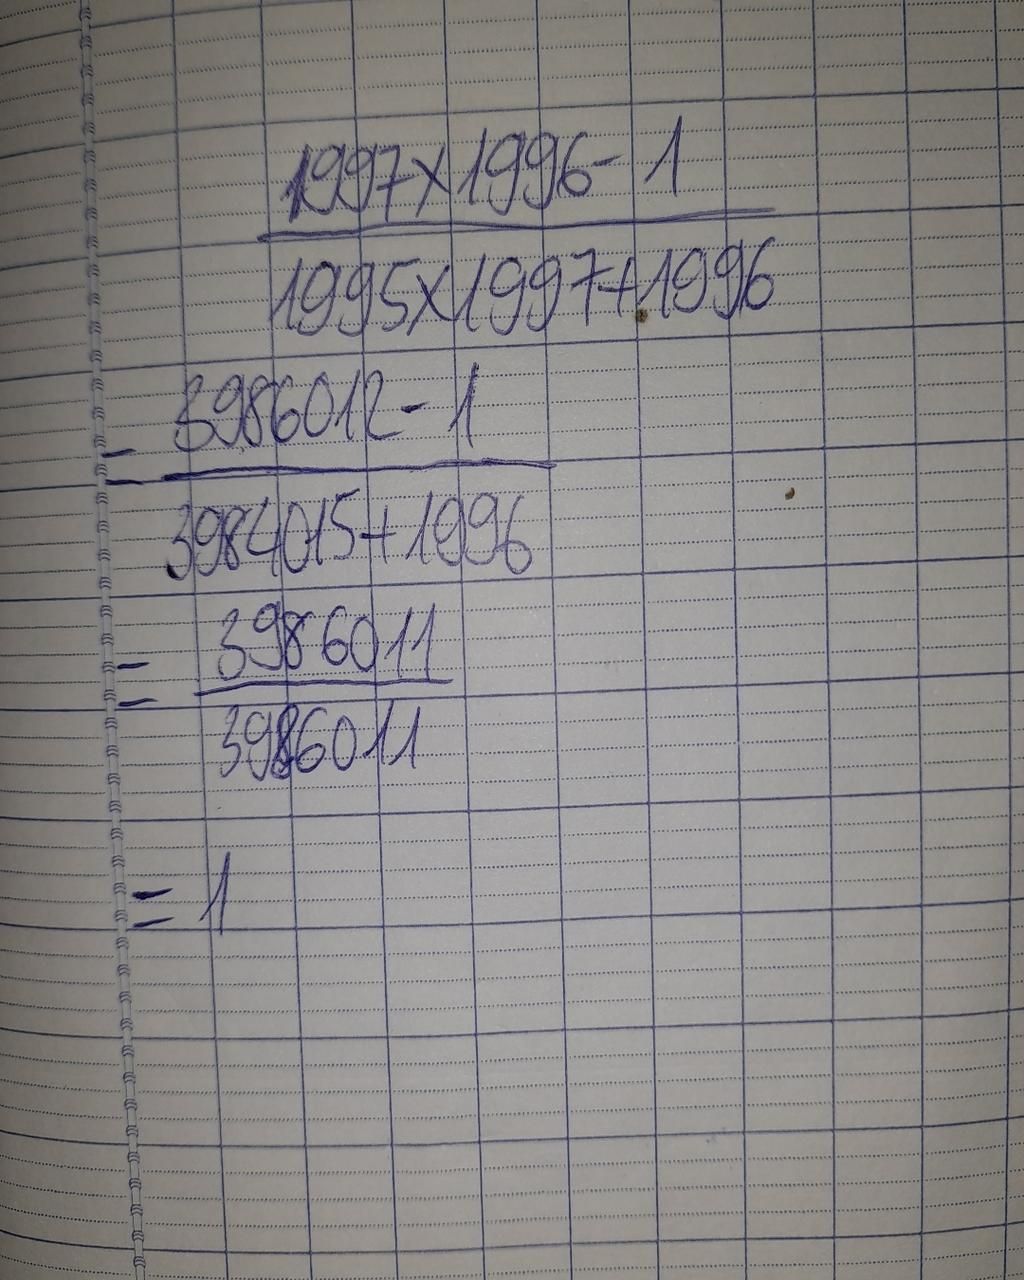 1997x1996-1
1995x1997+1996
= 3986012-1
3984015+1996
= 3986011
3986011
= 1